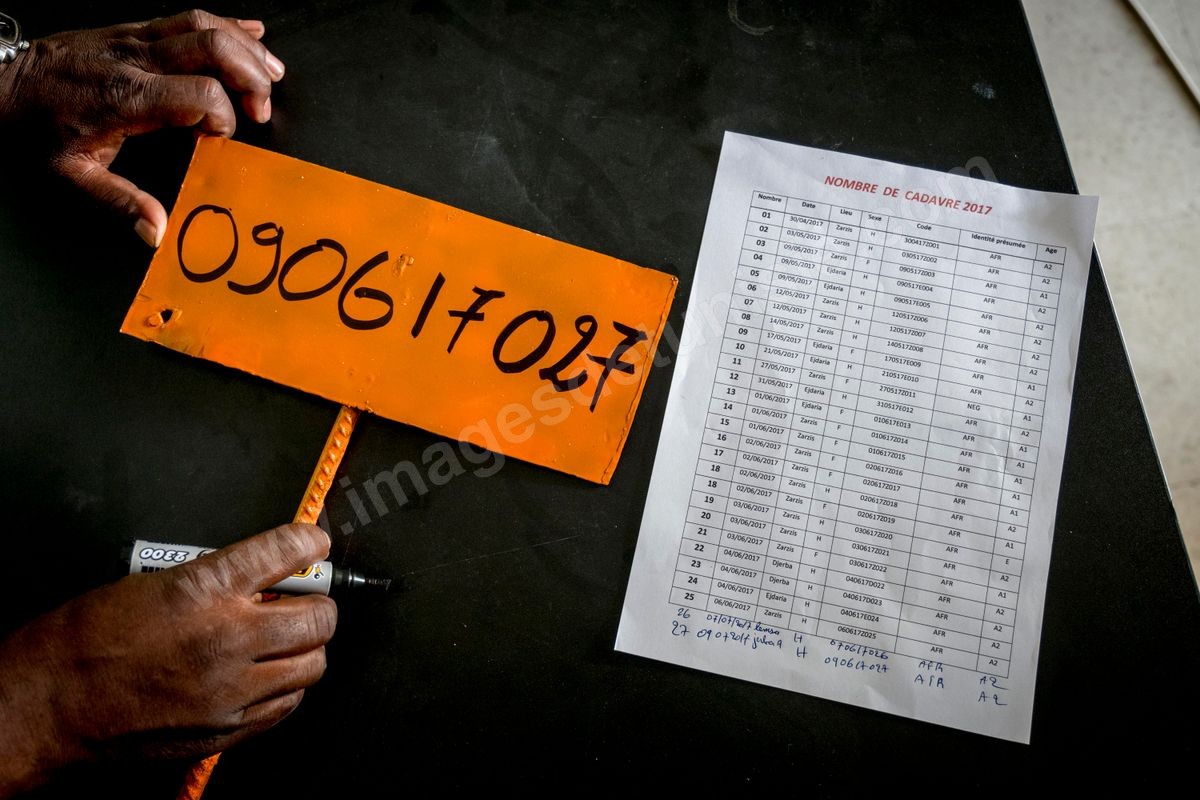 090617027
2300
NOMBRE DE CADAVRE 2017
Nombre Date Lieu Sexe Code Identité présumée Age
01 30/04/2017 Zarzis H 300417Z001 AFR A2
02 03/05/2017 Zarzis F 030517Z002 AFR A2
03 09/05/2017 Ejdaria H 090517Z003 AFR A1
04 09/05/2017 Ejdaria H 090517E004 AFR A2
05 09/05/2017 Zarzis H 090517E005 AFR A1
06 12/05/2017 Zarzis H 120517Z006 AFR A2
07 12/05/2017 Zarzis H 120517Z007 AFR A2
08 14/05/2017 Ejdaria F 140517Z008 AFR A2
09 17/05/2017 Ejdaria H 170517E009 AFR A1
10 21/05/2017 Zarzis H 210517E010 AFR A2
11 27/05/2017 Ejdaria H 270517Z011 NEG A2
12 31/05/2017 Ejdaria F 310517E012 AFR A2
13 01/06/2017 Zarzis F 010617E013 AFR A2
14 01/06/2017 Zarzis 010617Z014 AFR A1
15 01/06/2017 Zarzis F 010617Z015 AFR A1
16 02/06/2017 Zarzis F 020617Z016 AFR A1
17 02/06/2017 Zarzis H 020617Z017 AFR
18 02/06/2017 Zarzis F 020617Z018 AFR A2
19 02/06/2017 Zarzis H 020617Z019 AFR A1
20 03/06/2017 Zarzis 030617Z020 AFR E
21 03/06/2017 Zarzis F 030617Z021 AFR
22 03/06/2017 Djerba H 030617Z022 AFR A1
23 04/06/2017 Djerba H 040617D022 AFR A2
24 04/06/2017 Ejdaria H 040617D023 AFR A2
25 04/06/2017 Zarzis H 040617E024 AFR A2
06/06/2017 060617Z025
26 H 070617026 AFR A2
27 H 090617027 AFR A2